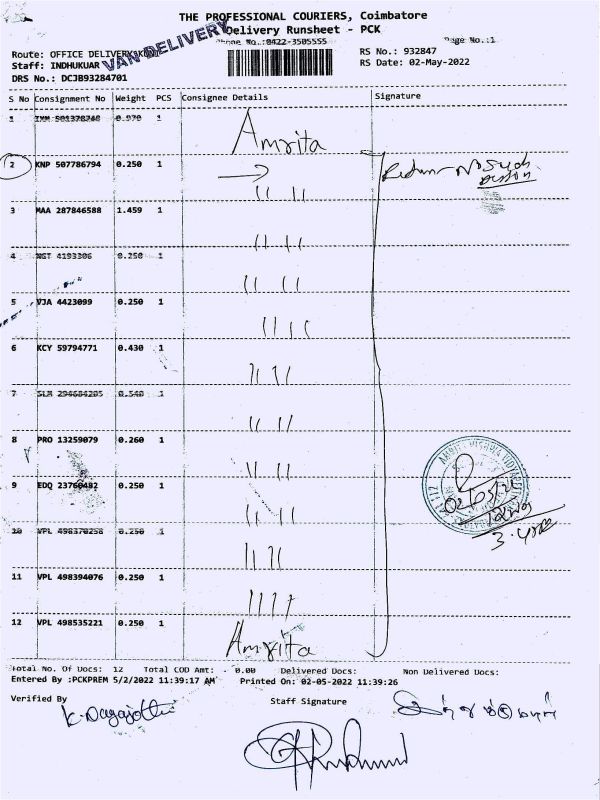 THE PROFESSIONAL COURIERS, Coimbatore
Delivery Runsheet - PCK
Phone No.:0422-3505555
Page No.:1
Route: OFFICE DELIVERY
VAN DELIVERY
RS No.: 932847
Staff: INDHUKUAR
RS Date: 02-May-2022
DRS No.: DCJB93284701
S No Consignment No Weight PCS Consignee Details Signature
1 IXM 501378248 0.970 1 Amrita
2 KNP 507786794 0.250 1 Return No Such Person
" "
3 MAA 287846588 1.459 1
" "
4 NGT 4193306 0.250 1
" "
5 VJA 4423099 0.250 1
" "
6 KCY 59794771 0.430 1
" "
7 SLM 294684205 0.540 1
" "
8 PRO 13259079 0.260 1
" "
9 EDQ 23760482 0.250 1
" "
10 VPL 498370258 0.250 1
" "
11 VPL 498394076 0.250 1
" "
12 VPL 498535221 0.250 1 Amrita
Total No. Of Docs: 12 Total COD Amt: 0.00 Delivered Docs: Non Delivered Docs:
Entered By :PCKPREM 5/2/2022 11:39:17 AM Printed On: 02-05-2022 11:39:26
Verified By
Staff Signature